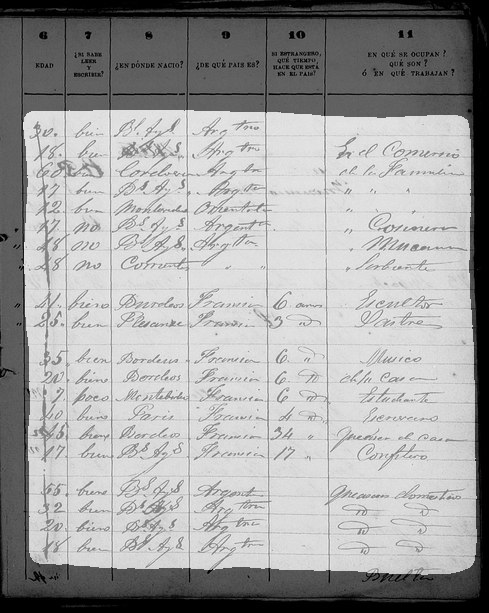 6 7 8 9 10 11
EDAD ¿SI SABE LEER Y ESCRIBIR? ¿EN DÓNDE NACIO? ¿DE QUÉ PAIS ES? SI ESTRANJERO, QUÉ TIEMPO HACE QUE ESTÁ EN EL PAIS? EN QUÉ SE OCUPAN? QUÉ SON? Ó EN QUÉ TRABAJAN?
30. bien Bs Ays Argtno
18. bien Argtn En el Comercio
60 Cordoves Argtn de la Familia
17 bien Bs Ays Argtn " " "
12 bien Montevideo Oriental
17 no Bs Ays Argent " Cocinera
18 no Bs Ays Argtn " Mucama
28 no Corrientes " " " Sirbiente
41. bien Burdeos Francia 6 años Escultor
25. bien Francia 3 Sastre
35 bien Bordeus Francia 6 " Musico
20. bien Bordeos Francia 6 de su Casa
9 poco Montebideo Francia 6 Estudiante
40 bien Paris Francia 4 Escribano
45 bien Bordeos Francia 34 " Queaser de casa
17 bien Bs Ays Francia 17 " Confitero
55 bien Bs Ays Argent Queaser domestico
32 bien Bs Ays Argtn
20 bien Bs Ays Argtn
18 bien Bs Ays Argtn